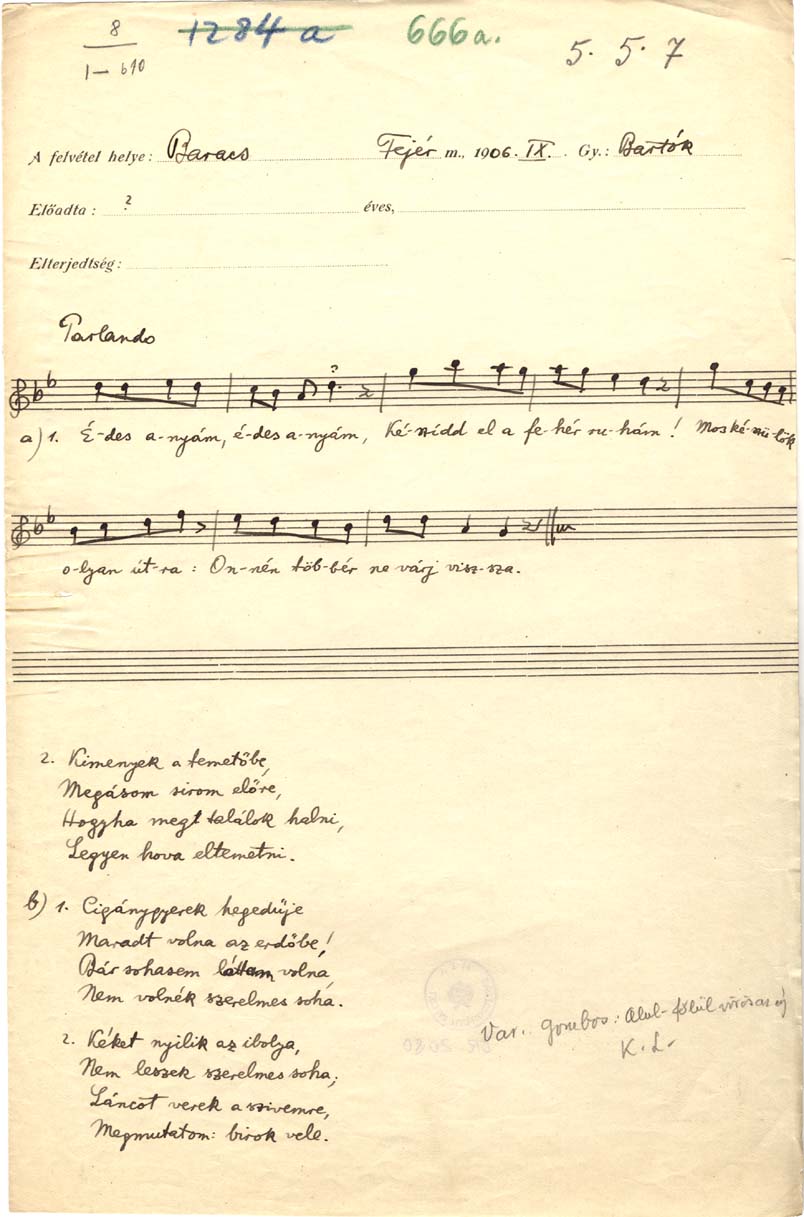 8
1284 a
666a.
5. 5. 7
1— 610
A felvétel helye: Baracs Fejér m., 1906. IX. Gy.: Bartók
Előadta: ? éves,
Elterjedtség:
Parlando
?
a) 1. É-des a-nyám, é-des a-nyám, Ké-szídd el a fe-hér ru-hám! Mos ké-szü-lök
o-lyan út-ra: On-nén töb-bér ne várj visz-sza.
2. Kimenyek a temetőbe,
Megásom sirom előre,
Hogyha megt találok halni,
Legyen hova eltemetni.
b) 1. Cigánygyerek hegedüje
Maradt volna az erdőbe!
Bár sohasem láttam volna,
Nem volnék szerelmes soha.
2. Kéket nyilik az ibolya,
Nem leszek szerelmes soha;
Láncot verek a szivemre,
Megmutatom: birok vele.
Var. gombos: Alul-fölül vörös az ég
K. L.